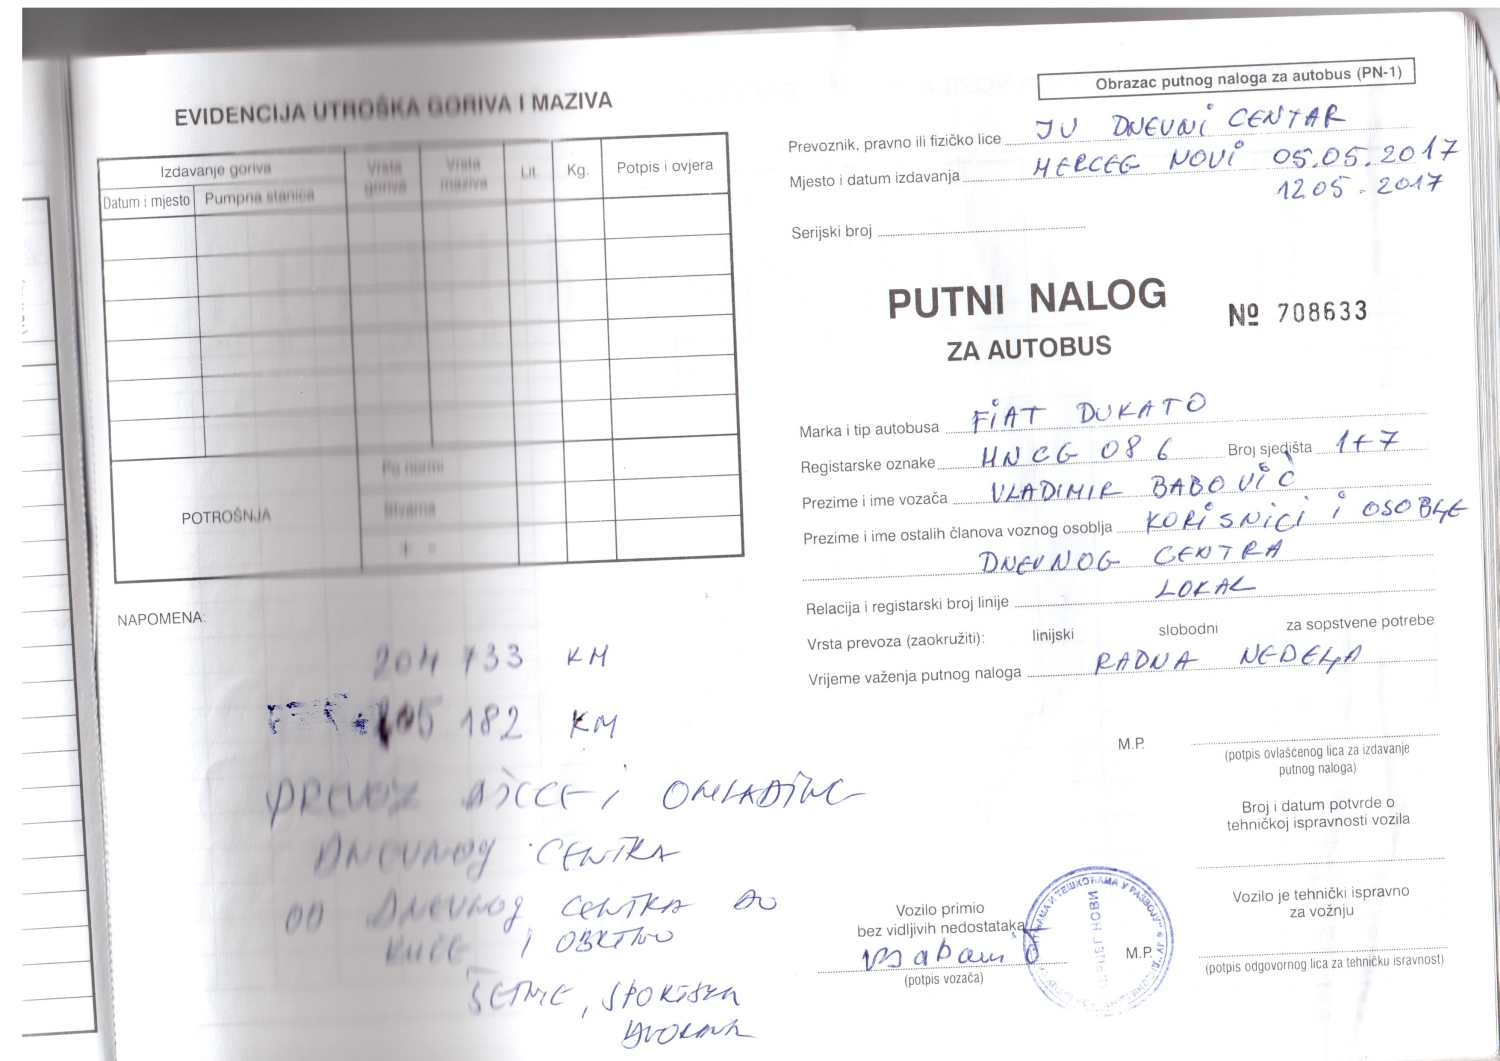 EVIDENCIJA UTROŠKA GORIVA I MAZIVA
Izdavanje goriva
Vrsta goriva
Vrsta maziva
Lit.
Kg.
Potpis i ovjera
Datum i mjesto
Pumpna stanica
POTROŠNJA
Po normi
Stvarna
+ =
NAPOMENA:
204 733 KM
205 182 KM
PREVOZ DJECE I OMLADINE
DNEVNOG CENTRA
OD DNEVNOG CENTRA DO
KUĆE I OBRTNO
ŠETNJE, SPORTSKA
DVORANA
Obrazac putnog naloga za autobus (PN-1)
Prevoznik, pravno ili fizičko lice JU DNEVNI CENTAR
Mjesto i datum izdavanja HERCEG NOVI 05.05.2017
12 05. 2017
Serijski broj
PUTNI NALOG
№ 708633
ZA AUTOBUS
Marka i tip autobusa FIAT DUKATO
Registarske oznake HN CG 086 Broj sjedišta 1+7
Prezime i ime vozača VLADIMIR BABOVIĆ
Prezime i ime ostalih članova voznog osoblja KORISNICI I OSOBLJE
DNEVNOG CENTRA
Relacija i registarski broj linije LOKAL
Vrsta prevoza (zaokružiti): linijski slobodni za sopstvene potrebe
Vrijeme važenja putnog naloga RADNA NEDELJA
M.P.
(potpis ovlašćenog lica za izdavanje
putnog naloga)
Broj i datum potvrde o
tehničkoj ispravnosti vozila
Vozilo primio
bez vidljivih nedostataka
(potpis vozača)
M.P.
Vozilo je tehnički ispravno
za vožnju
(potpis odgovornog lica za tehničku isravnost)